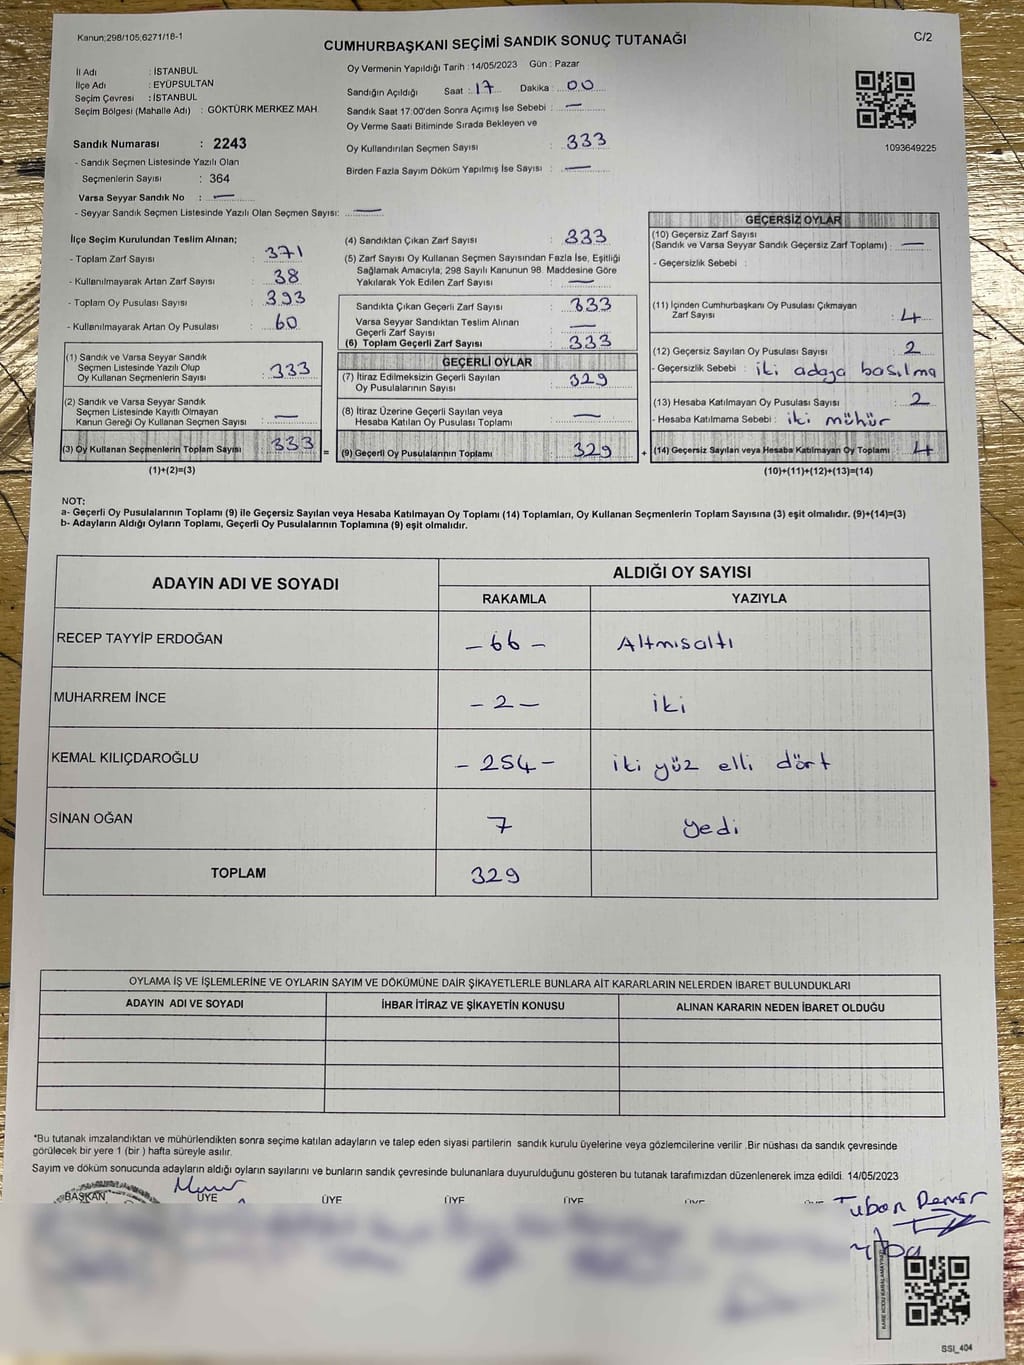 Kanun;298/105,6271/18-1
CUMHURBAŞKANI SEÇİMİ SANDIK SONUÇ TUTANAĞI
C/2
İl Adı : İSTANBUL
İlçe Adı : EYÜPSULTAN
Seçim Çevresi : İSTANBUL
Seçim Bölgesi (Mahalle Adı) : GÖKTÜRK MERKEZ MAH.
Oy Vermenin Yapıldığı Tarih : 14/05/2023 Gün : Pazar
Sandığın Açıldığı Saat : 17 Dakika : 00
Sandık Saat 17:00'den Sonra Açımış İse Sebebi : —
Oy Verme Saati Bitiminde Sırada Bekleyen ve
Oy Kullandırılan Seçmen Sayısı : 333
Birden Fazla Sayım Döküm Yapılmış İse Sayısı : —
1093649225
Sandık Numarası : 2243
- Sandık Seçmen Listesinde Yazılı Olan
Seçmenlerin Sayısı : 364
Varsa Seyyar Sandık No : —
- Seyyar Sandık Seçmen Listesinde Yazılı Olan Seçmen Sayısı: —
İlçe Seçim Kurulundan Teslim Alınan;
- Toplam Zarf Sayısı : 371
- Kullanılmayarak Artan Zarf Sayısı : 38
- Toplam Oy Pusulası Sayısı : 393
- Kullanılmayarak Artan Oy Pusulası : 60
(1) Sandık ve Varsa Seyyar Sandık
Seçmen Listesinde Yazılı Olup
Oy Kullanan Seçmenlerin Sayısı : 333
(2) Sandık ve Varsa Seyyar Sandık
Seçmen Listesinde Kayıtlı Olmayan
Kanun Gereği Oy Kullanan Seçmen Sayısı : —
(3) Oy Kullanan Seçmenlerin Toplam Sayısı : 333 =
(1)+(2)=(3)
(4) Sandıktan Çıkan Zarf Sayısı : 333
(5) Zarf Sayısı Oy Kullanan Seçmen Sayısından Fazla İse, Eşitliği
Sağlamak Amacıyla; 298 Sayılı Kanunun 98. Maddesine Göre
Yakılarak Yok Edilen Zarf Sayısı : —
Sandıkta Çıkan Geçerli Zarf Sayısı : 333
Varsa Seyyar Sandıktan Teslim Alınan
Geçerli Zarf Sayısı : —
(6) Toplam Geçerli Zarf Sayısı : 333
GEÇERLİ OYLAR
(7) İtiraz Edilmeksizin Geçerli Sayılan
Oy Pusulalarının Sayısı : 329
(8) İtiraz Üzerine Geçerli Sayılan veya
Hesaba Katılan Oy Pusulası Toplamı : —
(9) Geçerli Oy Pusulalarının Toplamı 329 +
GEÇERSİZ OYLAR
(10) Geçersiz Zarf Sayısı
(Sandık ve Varsa Seyyar Sandık Geçersiz Zarf Toplamı) : —
- Geçersizlik Sebebi :
(11) İçinden Cumhurbaşkanı Oy Pusulası Çıkmayan
Zarf Sayısı : 4
(12) Geçersiz Sayılan Oy Pusulası Sayısı : 2
- Geçersizlik Sebebi : iki adaya basılma
(13) Hesaba Katılmayan Oy Pusulası Sayısı : 2
- Hesaba Katılmama Sebebi : iki mühür
(14) Geçersiz Sayılan veya Hesaba Katılmayan Oy Toplamı : 4
(10)+(11)+(12)+(13)=(14)
NOT:
a- Geçerli Oy Pusulalarının Toplamı (9) ile Geçersiz Sayılan veya Hesaba Katılmayan Oy Toplamı (14) Toplamları, Oy Kullanan Seçmenlerin Toplam Sayısına (3) eşit olmalıdır. (9)+(14)=(3)
b- Adayların Aldığı Oyların Toplamı, Geçerli Oy Pusulalarının Toplamına (9) eşit olmalıdır.
ADAYIN ADI VE SOYADI
ALDIĞI OY SAYISI
RAKAMLA YAZIYLA
RECEP TAYYİP ERDOĞAN - 66 - Altmısaltı
MUHARREM İNCE - 2 - iki
KEMAL KILIÇDAROĞLU - 254 - iki yüz elli dört
SİNAN OĞAN 7 yedi
TOPLAM 329
OYLAMA İŞ VE İŞLEMLERİNE VE OYLARIN SAYIM VE DÖKÜMÜNE DAİR ŞİKAYETLERLE BUNLARA AİT KARARLARIN NELERDEN İBARET BULUNDUKLARI
ADAYIN ADI VE SOYADI İHBAR İTİRAZ VE ŞİKAYETİN KONUSU ALINAN KARARIN NEDEN İBARET OLDUĞU
*Bu tutanak imzalandıktan ve mühürlendikten sonra seçime katılan adayların ve talep eden siyasi partilerin sandık kurulu üyelerine veya gözlemcilerine verilir .Bir nüshası da sandık çevresinde
görülecek bir yere 1 (bir ) hafta süreyle asılır.
Sayım ve döküm sonucunda adayların aldığı oyların sayılarını ve bunların sandık çevresinde bulunanlara duyurulduğunu gösteren bu tutanak tarafımızdan düzenlenerek imza edildi. 14/05/2023
BAŞKAN ÜYE ÜYE ÜYE ÜYE ÜYE
SSI_404